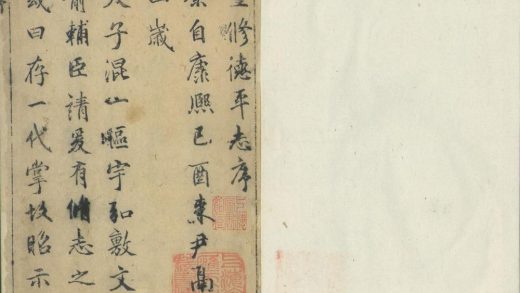 修德平志序
自康熙己酉来尹鬲
歲
天子混一區宇弘敷文
前輔臣請爰有脩志之
或曰存一代掌故昭示